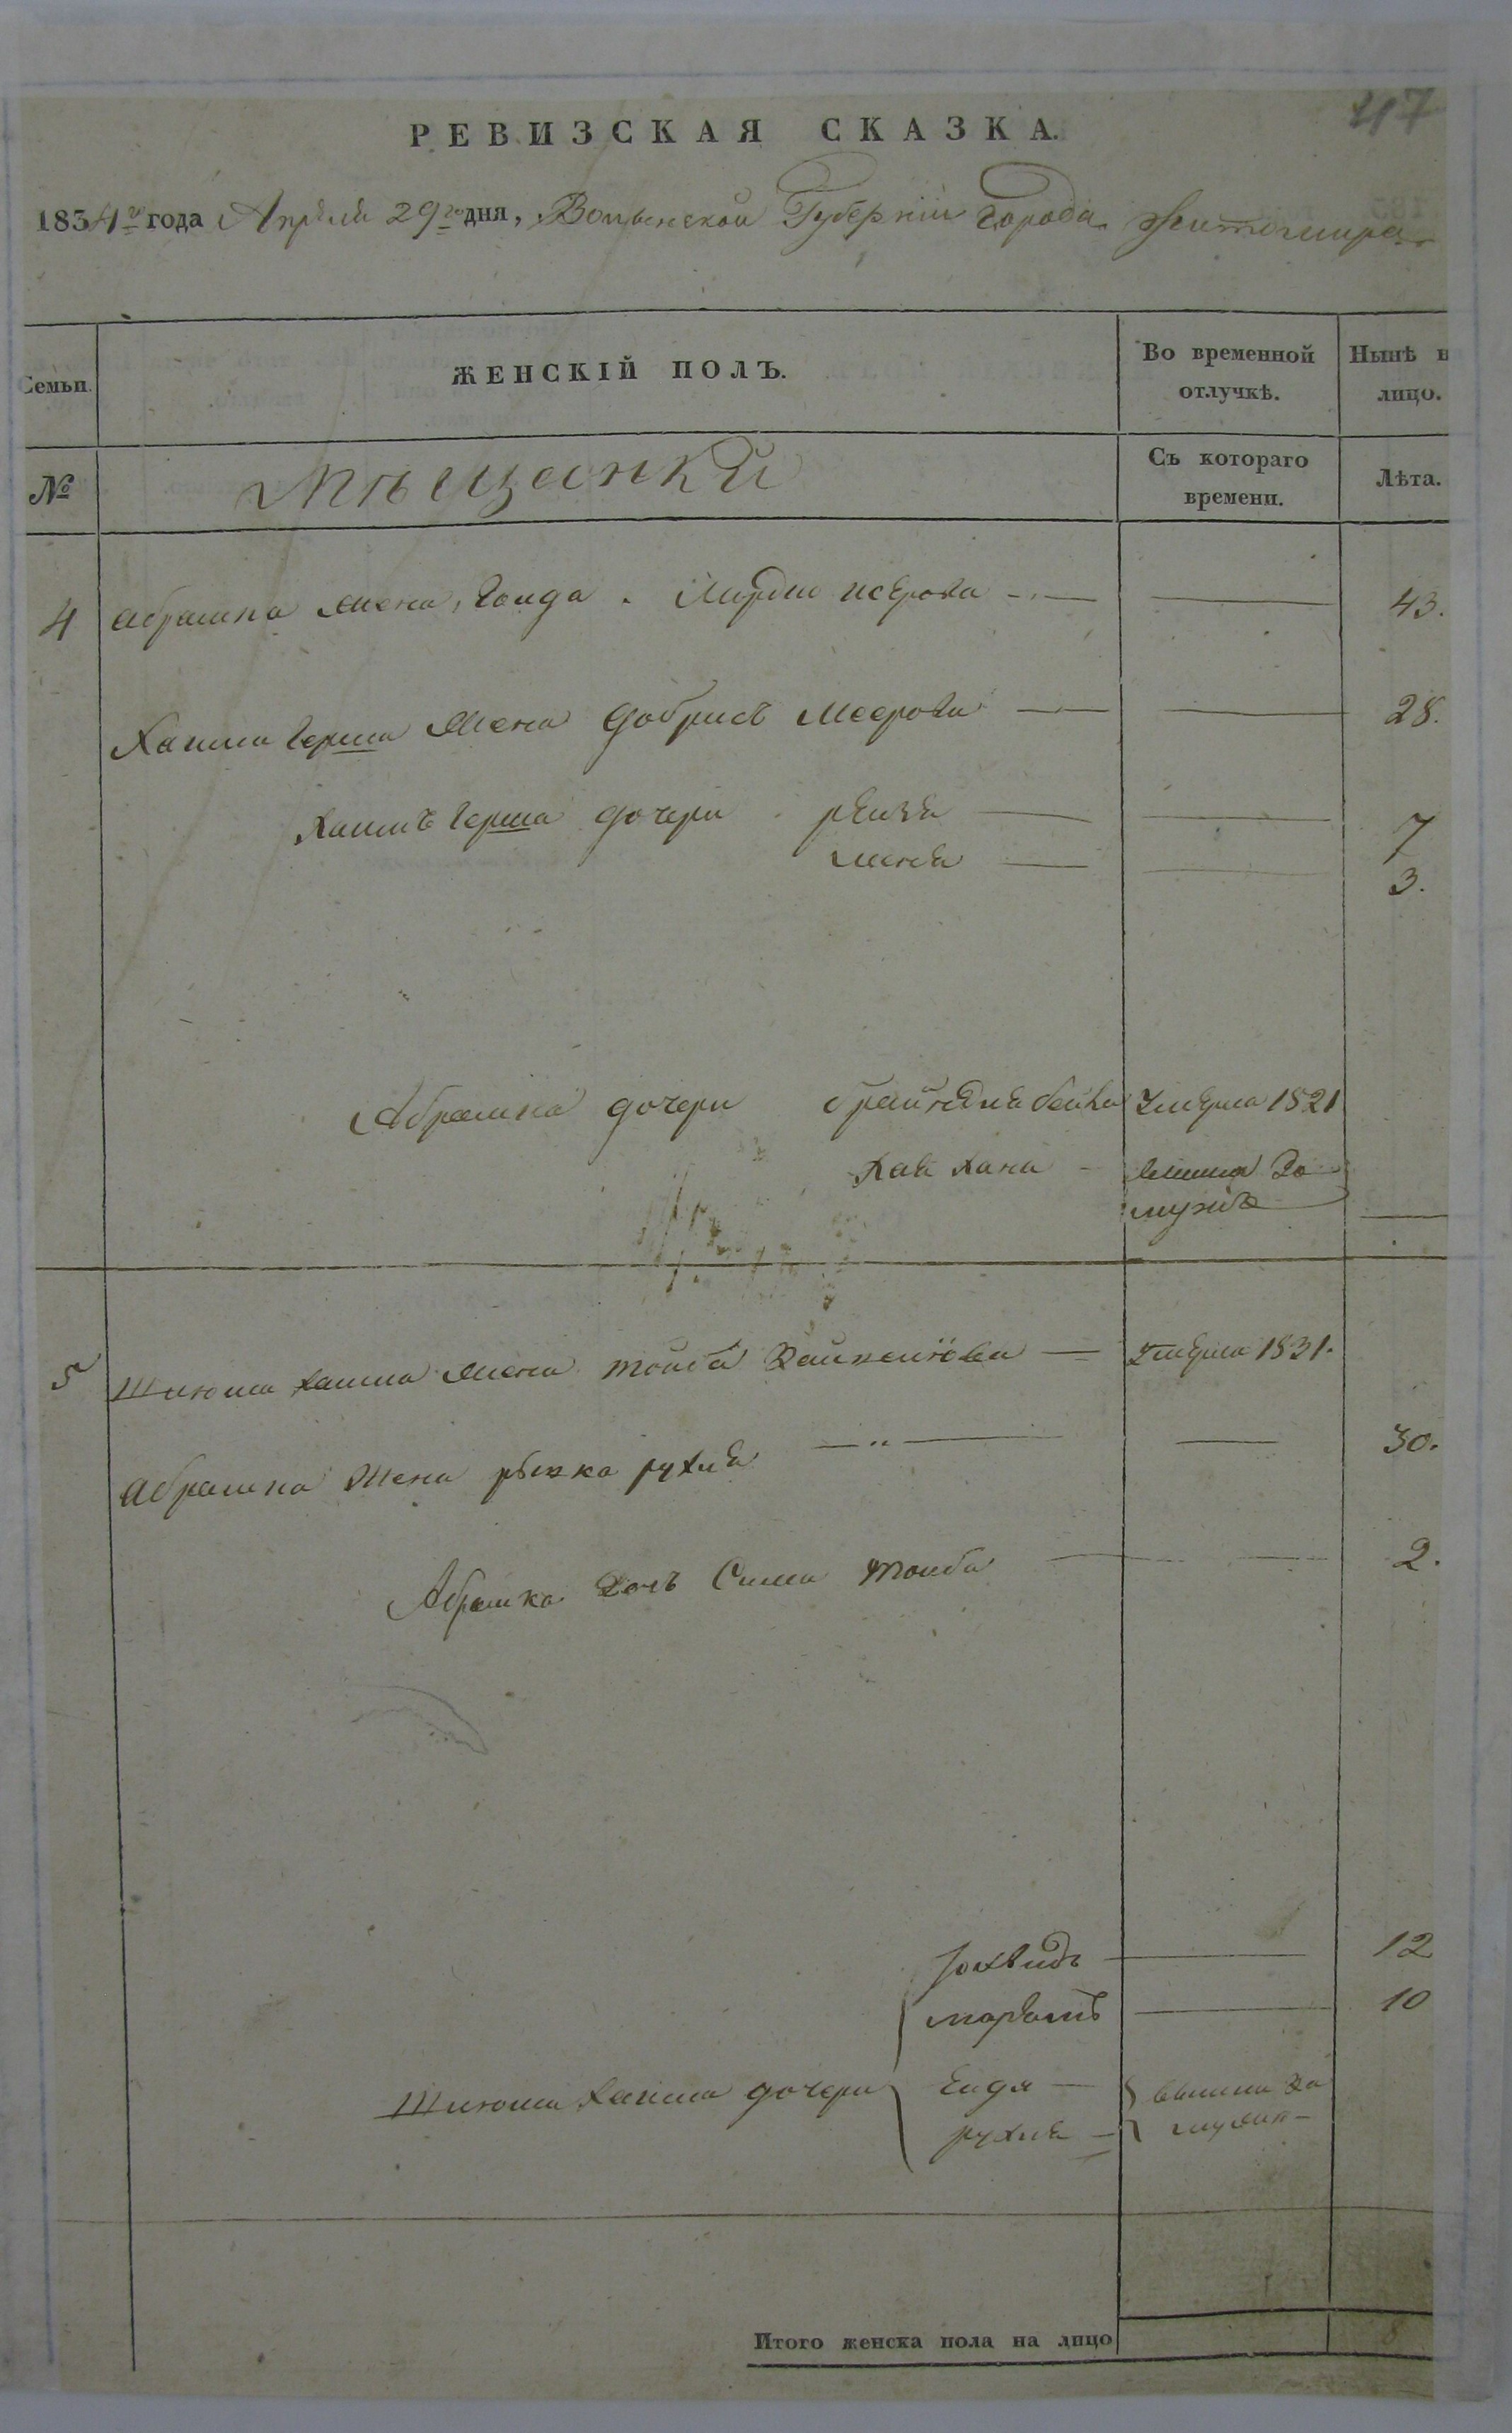 47
РЕВИЗСКАЯ СКАЗКА.
1834го года Апреля 29го дня, Волынской Губернии Города Житомира
Семьи. ЖЕНСКІЙ ПОЛЪ. Во временной отлучкѣ. Нынѣ н лицо.
№ Мѣщанки Съ котораго времени. Лѣта.
4 Абрамка жена, Голда Исерова — — 43.
Хаима Герша жена Добрисъ Меерова — — 28.
Хаимъ Герша дочери рейзя — — 7
меня — — 3.
Абрамка дочери бейла умерла 1821
Хая Хана - вышла за
мужъ
5 Шлюма Хаима жена Тойба — умерла 1831.
Абрамка жена рывка рухля — — 30.
Абрамка дочь Сима Тойба — — 2.
Іохвидъ — 12
марьямъ — 10
Шлюма Хаима дочери Ендя — вышли за
рухля — мужъ —
Итого женска пола на лицо 8